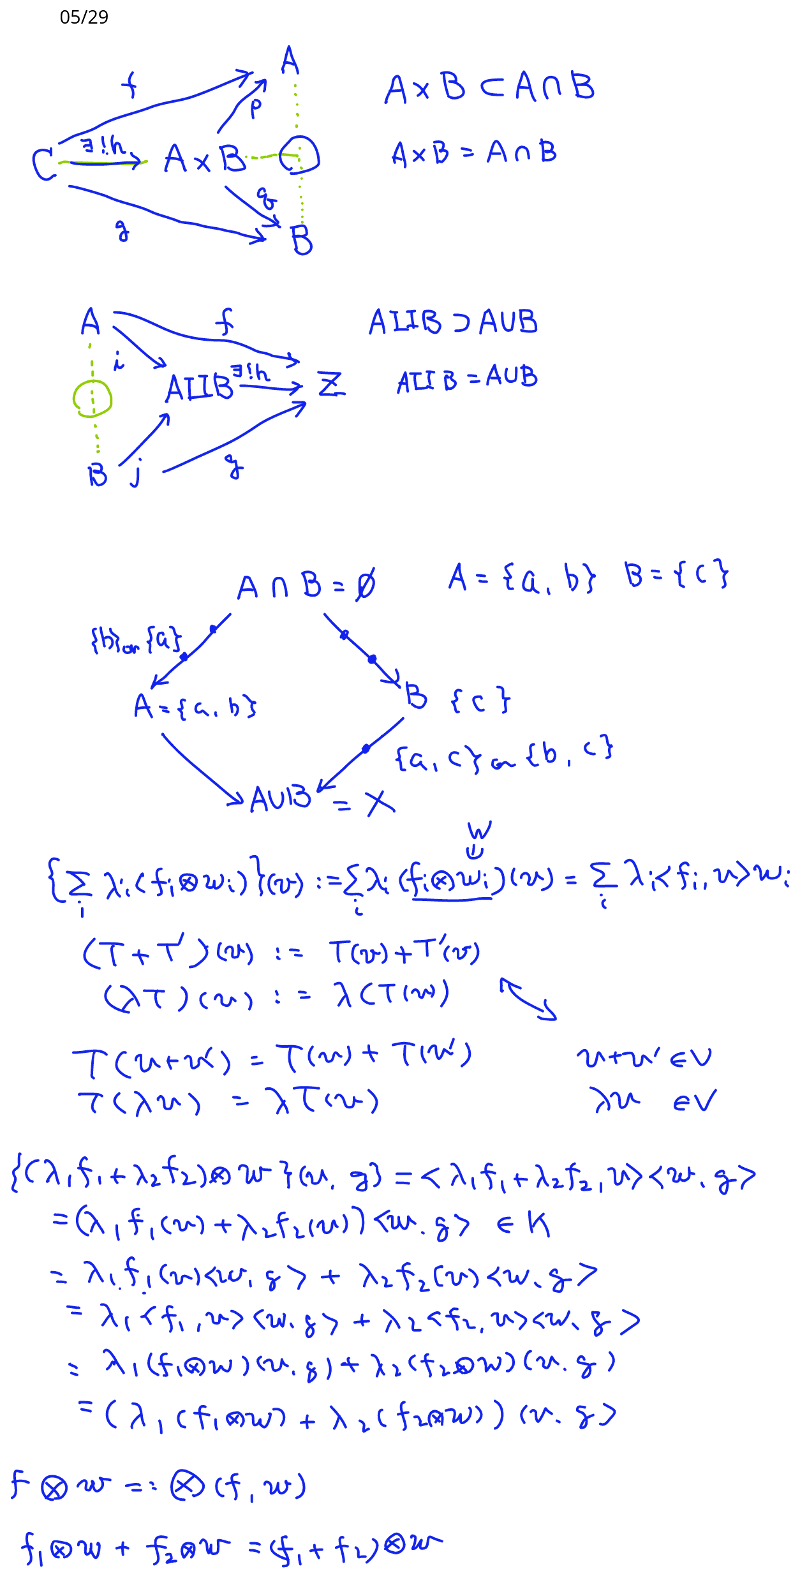 05/29
A
f
p
A × B ⊂ A ∩ B
C ∃!h A × B
A × B = A ∩ B
q
g
B
A
f
A⨿B ⊃ A∪B
i
A⨿B ∃!h Z
A⨿B = A∪B
B j
g
A ∩ B = ∅ A = {a, b} B = {c}
{b} or {a}
A = {a, b} B {c}
{a, c} or {b, c}
A∪B = X
W
{∑i λi(fi⊗wi)}(v) := ∑i λi(fi⊗wi)(v) = ∑i λi<fi, v>wi
(T + T′)(v) := T(v) + T′(v)
(λT)(v) := λ(T(v))
T(v+v′) = T(v) + T(v′) v+v′ ∈ V
T(λv) = λT(v) λv ∈ V
{(λ₁f₁+λ₂f₂)⊗w}(v, g) = <λ₁f₁+λ₂f₂, v><w, g>
= (λ₁f₁(v) + λ₂f₂(v))<w, g> ∈ K
= λ₁f₁(v)<w, g> + λ₂f₂(v)<w, g>
= λ₁<f₁, v><w, g> + λ₂<f₂, v><w, g>
= λ₁(f₁⊗w)(v, g) + λ₂(f₂⊗w)(v, g)
= (λ₁(f₁⊗w) + λ₂(f₂⊗w))(v, g)
f ⊗ w =: ⊗(f, w)
f₁⊗w + f₂⊗w = (f₁ + f₂)⊗w